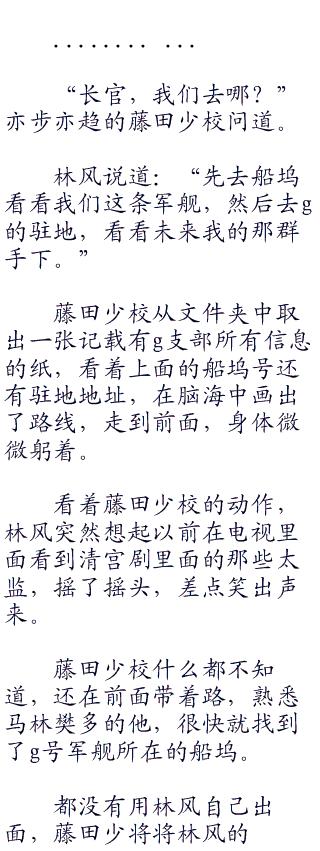 ........ ...
“长官，我们去哪？”
亦步亦趋的藤田少校问道。
林风说道：“先去船坞
看看我们这条军舰，然后去g
的驻地，看看未来我的那群
手下。”
藤田少校从文件夹中取
出一张记载有g支部所有信息
的纸，看着上面的船坞号还
有驻地地址，在脑海中画出
了路线，走到前面，身体微
微躬着。
看着藤田少校的动作，
林风突然想起以前在电视里
面看到清宫剧里面的那些太
监，摇了摇头，差点笑出声
来。
藤田少校什么都不知
道，还在前面带着路，熟悉
马林樊多的他，很快就找到
了g号军舰所在的船坞。
都没有用林风自己出
面，藤田少将将林风的